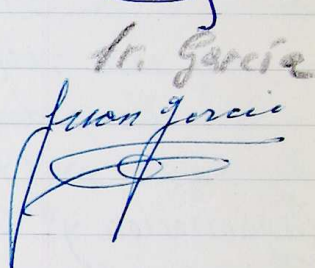 Sr. García
Juan Garcia